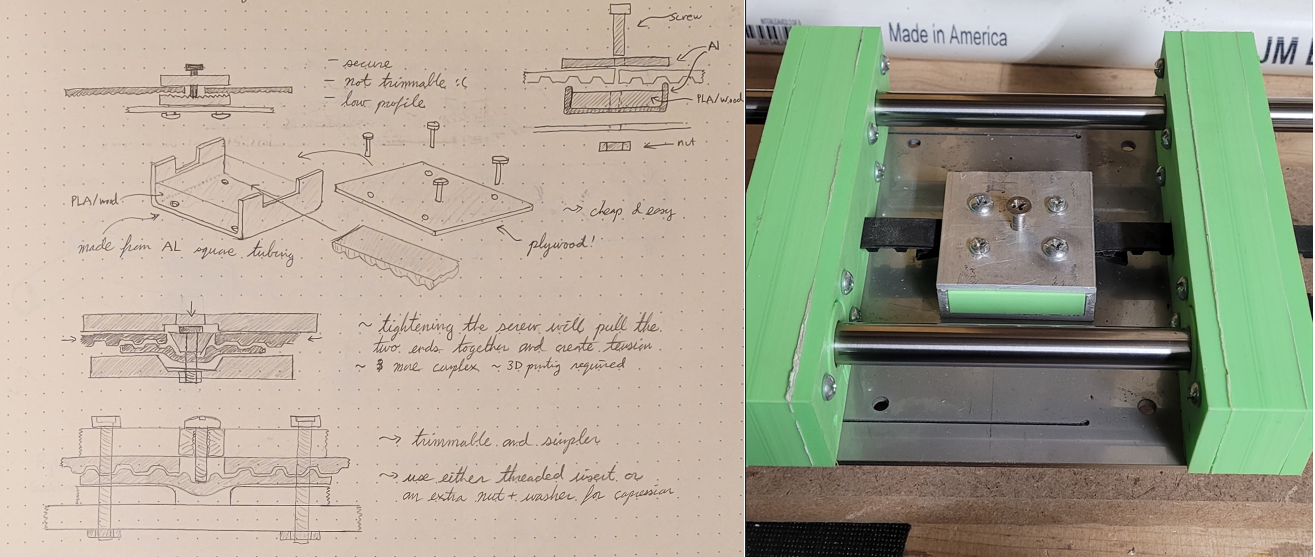 screw
Al
PLA/wood
nut
- secure
- not trimmable :(
- low profile
PLA/wood
made from AL square tubing
~> cheap & easy
plywood!
~ tightening the screw will pull the
two ends together and create tension
~ more complex ~ 3D printing required
~> trimmable and simpler
~> use either threaded insert or
an extra nut + washer for compression
Made in America
UM